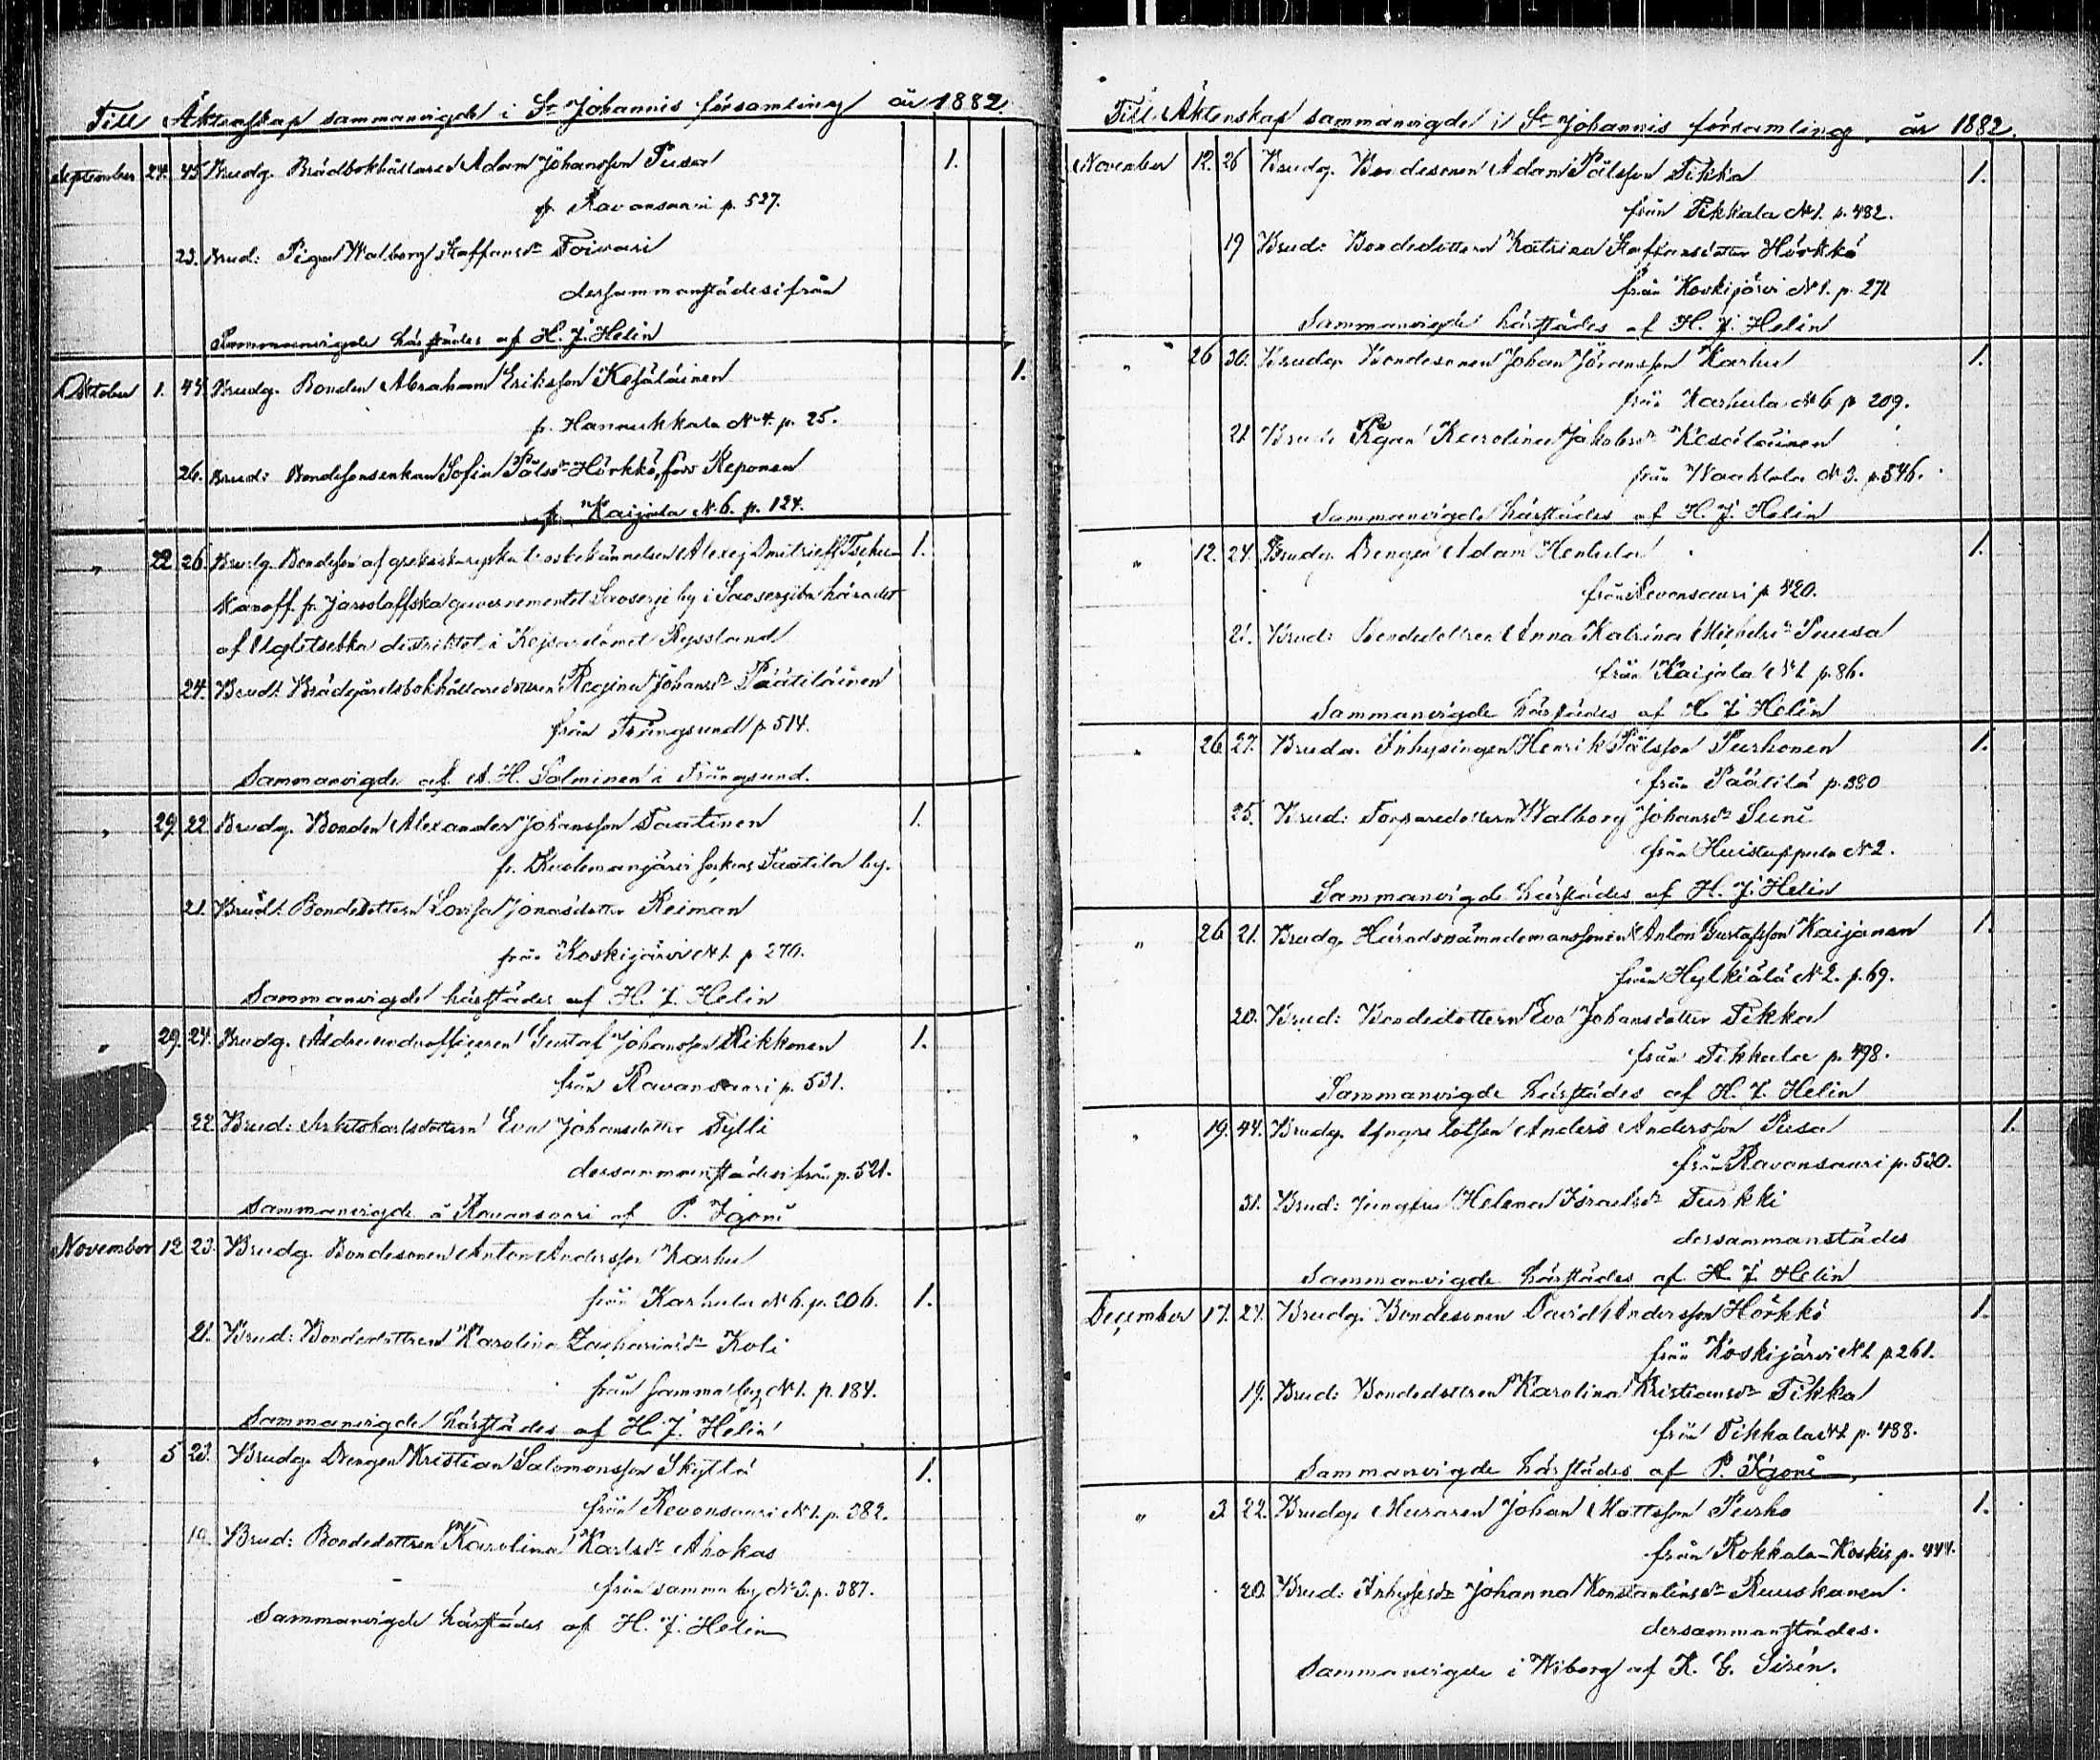 Till Äktenskap sammanvigde i St Johannis församling år 1882.
September 24. 45. Brudg. Brädbokhållaren Adam Johansson Pusa 1.
fr. Ravansaari p. 527.
23. Brud: Pigan Walborg Staffansdr Toivari
dersammanstädes ifrån
Sammanvigde härstädes af H. J. Helin
Oktober 1. 44. Brudg. Bonden Abraham Eriksson Kesäläinen 1.
fr. Hannukkala No 4. p. 25.
26. Brud: Bondesonsenkan Sofia Pålsdr Hörkkö, född Reponen
fr. Kaijala No 6. p. 124.
" 22 26. Brudg. Bondeson af grekiskaryska troskekännelsen Alexej Dmitrieff Tschu- 1.
Karoff fr. Jaroslaffska guvernementet Saoserje by i Saoserjeska häradet
af Uglitsetska distriktet i Kejsardömet Ryssland
24. Brud: Brädgårdsbokhållaredottren Regina Johansdr Päätiläinen
från Trångsund p 514.
Sammanvigde af A. H. Salminen i Trångsund.
" 29. 22 Brudg. Bonden Alexander Johansson Taatinen 1.
fr. Kuolemanjärvi sockens Taatila by.
21. Brud: Bondedottern Lovisa Jonasdotter Reiman
från Koskijärvi No 1. p 270.
Sammanvigde härstädes af H. J. Helin
" 29. 24. Brudg. Äldreunderofficeren Gustaf Johansson Rikkonen 1.
från Ravansaari p. 531.
22 Brud: Arbetskarlsdottern Eva Johansdotter Tylli
dersammanstädes ifrån p. 521.
Sammanvigde å Ravansaari af P. Jgoni
November 12 23. Brudg. Bondesonen Anton Andersson Karhu
från Karhula No 6. p. 206. 1.
21. Brud: Bondedottren Karolina Zachariasdr Koli
från samma by No 1. p. 184.
Sammanvigde härstädes af H. J. Helin
" 5 23. Brudg. Drengen Kristian Salomonsson Skyttä 1.
från Revonsaari No 1. p. 382.
19. Brud: Bondedottren Karolina Karlsdr Ahokas
från samma by No 3. p. 387.
Sammanvigde härstädes af H. J. Helin
Till Äktenskap sammanvigde i St Johannis församling år 1882.
November 12. 26 Brudg. Bondesonen Adam Pålsson Tikka 1.
från Tikkala No 1. p. 482.
19 Brud: Bondedottern Katrina Staffansdotter Hörkkö
från Koskijärvi No 1. p. 272
Sammanvigde härstädes af H. J. Helin
" 26 30. Brudg. Bondesonen Johan Göransson Karhu 1.
från Karhula No 6 p 209.
21. Brud: Pigan Karolina Jakobsdr Kesäläinen
från Waahtola No 3. p. 546.
Sammanvigde härstädes af H. J. Helin
" 12. 24. Brudg. Drengen Adam Hentula 1.
från Revonsaari p 420.
21. Brud: Bondedottren Anna Katrina Michelsdr Puusa
från Kaijala No 1 p. 86.
Sammanvigde härstädes af H. J. Helin
" 26 27. Brudg. Inhysingen Henrik Pålsson Purhonen 1.
från Päätilä p. 380
25. Brud: Torparedottern Walborg Johansdr Suni
från Huistuppula No 2.
Sammanvigde härstädes af H. J. Helin
" 26 21. Brudg. Häradsnämndemanssonen Anton Gustafsson Kaijanen 1.
från Hylkiälä No 2. p. 69.
20. Brud: Bondedottern Eva Johansdotter Tikka
från Tikkala p. 498.
Sammanvigde härstädes af H. J. Helin
" 19. 44. Brudg. Yngre lotsen Anders Andersson Pusa 1.
från Ravansaari p. 530.
31. Brud: Jungfru Helena Israelsdr Turkki
dersammanstädes
Sammanvigde härstädes af H. J. Helin
December 17. 27. Brudg. Bondesonen David Andersson Hörkkö 1.
från Koskijärvi No 1 p 261.
19. Brud: Bondedottren Karolina Kristiansdr Tikka
från Tikkala No 1 p. 488.
Sammanvigde härstädes af P. Jgoni
" 3. 22. Brudg. Muraren Johan Mattsson Purho 1.
från Rokkala-Koskis p. 444.
20. Brud: Inhysesdr Johanna Konstantinsdr Ruuskanen
dersammanstädes.
Sammanvigde i Wiborg af K. G. Sirén.